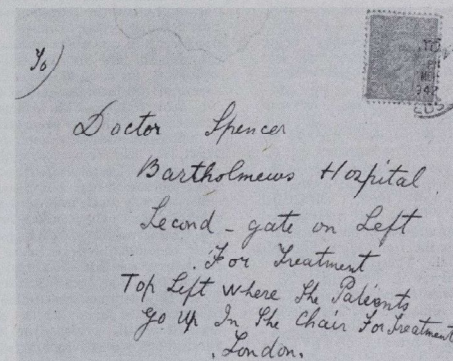 To
Doctor Spencer
Bartholmews Hospital
Second - gate on Left
For Treatment
Top Left where The Patients
go Up In The Chair For Treatment
London.